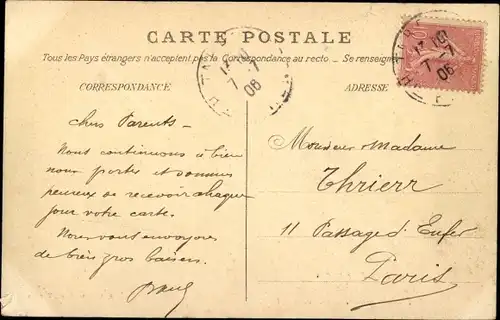 CARTE POSTALE
Tous les Pays étrangers n'acceptent pas la Correspondance au recto._ Se renseigner
CORRESPONDANCE
ADRESSE
7 -7
06
7 -7
06
chers Parents _
Nous continuons à bien
nous porter et sommes
heureux de recevoir chaque
jour votre carte.
Nous vous envoyons
de bien gros baisers.
Monsieur Madame
Thrierr
11 Passage d'Enfer
Paris